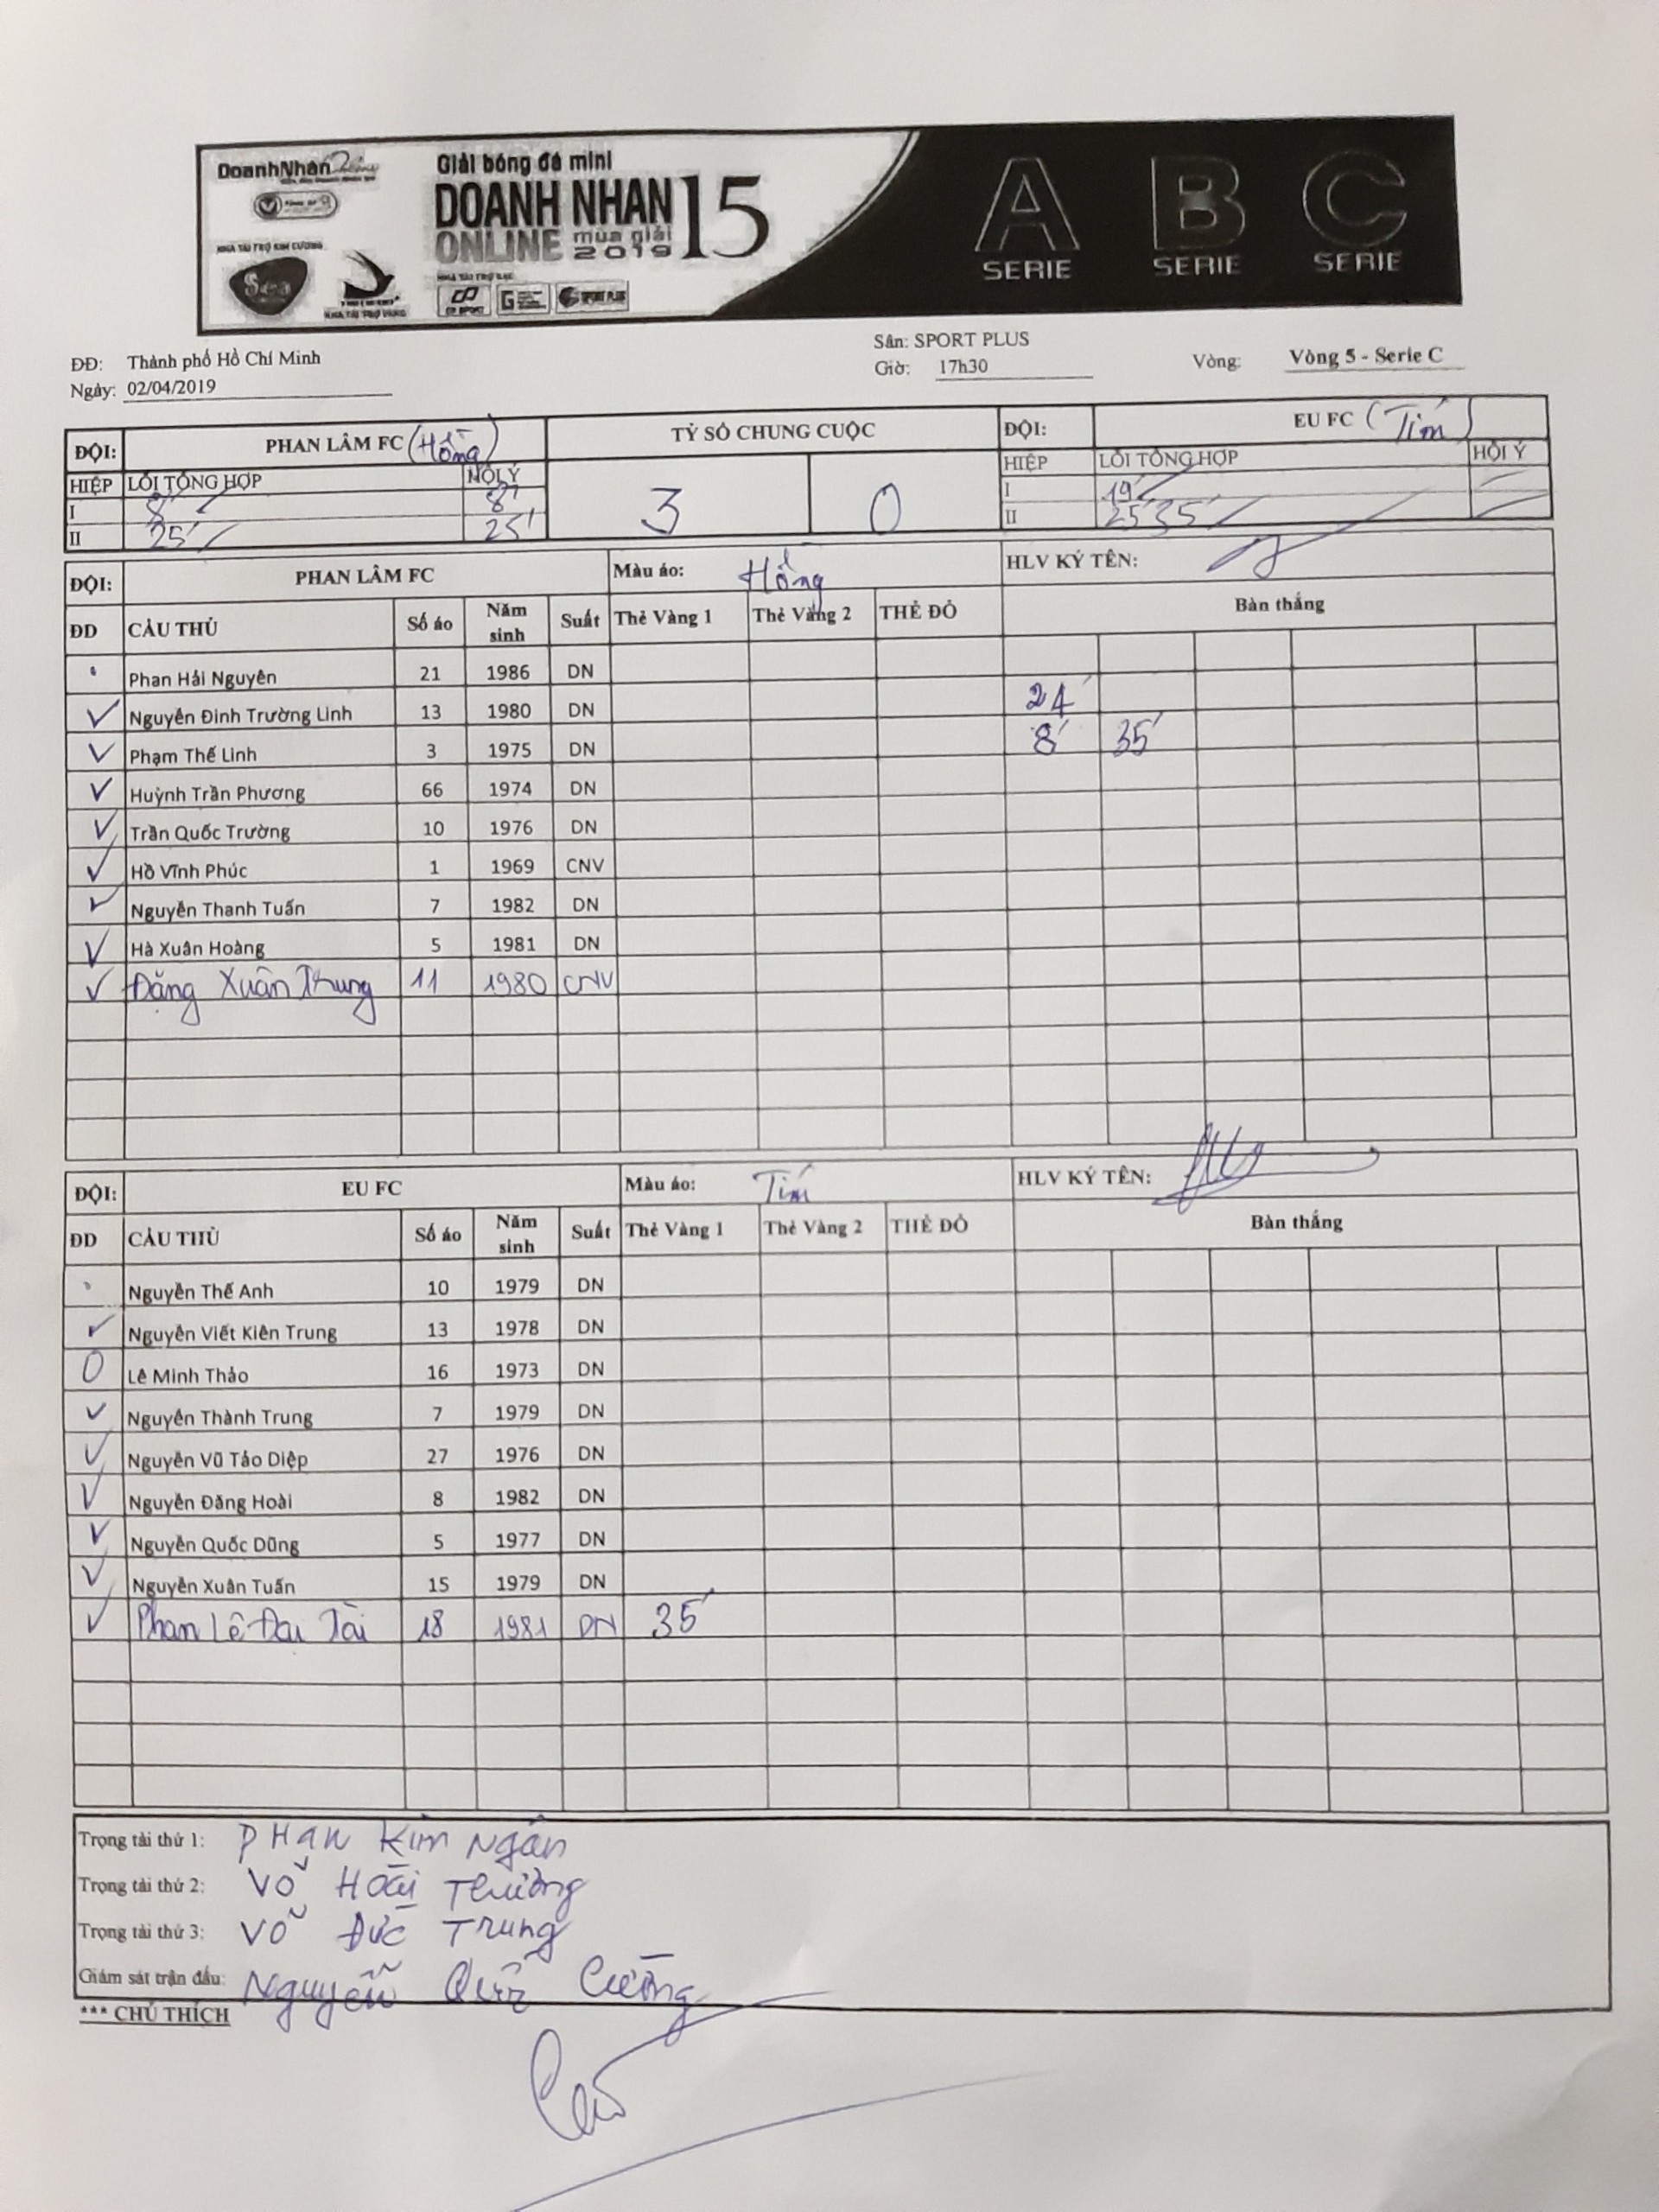 DoanhNhân
Giải bóng đá mini
DOANH NHAN 15
ONLINE mùa giải 2019
NHÀ TÀI TRỢ KIM CƯƠNG
Sea
NHÀ TÀI TRỢ VÀNG
NHÀ TÀI TRỢ BẠC
SPORT PLUS
A SERIE B SERIE C SERIE
ĐĐ: Thành phố Hồ Chí Minh
Ngày: 02/04/2019
Sân: SPORT PLUS
Giờ: 17h30
Vòng: Vòng 5 - Serie C
ĐỘI: PHAN LÂM FC (Hồng) TỶ SỐ CHUNG CUỘC ĐỘI: EU FC (Tím)
HIỆP LỖI TỔNG HỢP HỘI Ý 3 0 HIỆP LỖI TỔNG HỢP HỘI Ý
I 8' 8' I 19'
II 25' 25' II 25' 35'
ĐỘI: PHAN LÂM FC Màu áo: Hồng HLV KÝ TÊN:
ĐD CẦU THỦ Số áo Năm sinh Suất Thẻ Vàng 1 Thẻ Vàng 2 THẺ ĐỎ Bàn thắng
Phan Hải Nguyên 21 1986 DN
Nguyễn Đinh Trường Linh 13 1980 DN 24'
Phạm Thế Linh 3 1975 DN 8' 35'
Huỳnh Trần Phương 66 1974 DN
Trần Quốc Trường 10 1976 DN
Hồ Vĩnh Phúc 1 1969 CNV
Nguyễn Thanh Tuấn 7 1982 DN
Hà Xuân Hoàng 5 1981 DN
Đặng Xuân Trung 11 1980 CNV
ĐỘI: EU FC Màu áo: Tím HLV KÝ TÊN:
ĐD CẦU THỦ Số áo Năm sinh Suất Thẻ Vàng 1 Thẻ Vàng 2 THẺ ĐỎ Bàn thắng
Nguyễn Thế Anh 10 1979 DN
Nguyễn Viết Kiên Trung 13 1978 DN
O Lê Minh Thảo 16 1973 DN
Nguyễn Thành Trung 7 1979 DN
Nguyễn Vũ Tảo Diệp 27 1976 DN
Nguyễn Đăng Hoài 8 1982 DN
Nguyễn Quốc Dũng 5 1977 DN
Nguyễn Xuân Tuấn 15 1979 DN
Phan Lê Đại Tài 18 1981 DN 35'
Trọng tài thứ 1: PHAN Kim Ngân
Trọng tài thứ 2: Võ Hoài Thương
Trọng tài thứ 3: Võ Đức Trung
Giám sát trận đấu: Nguyễn Quốc Cường
*** CHÚ THÍCH